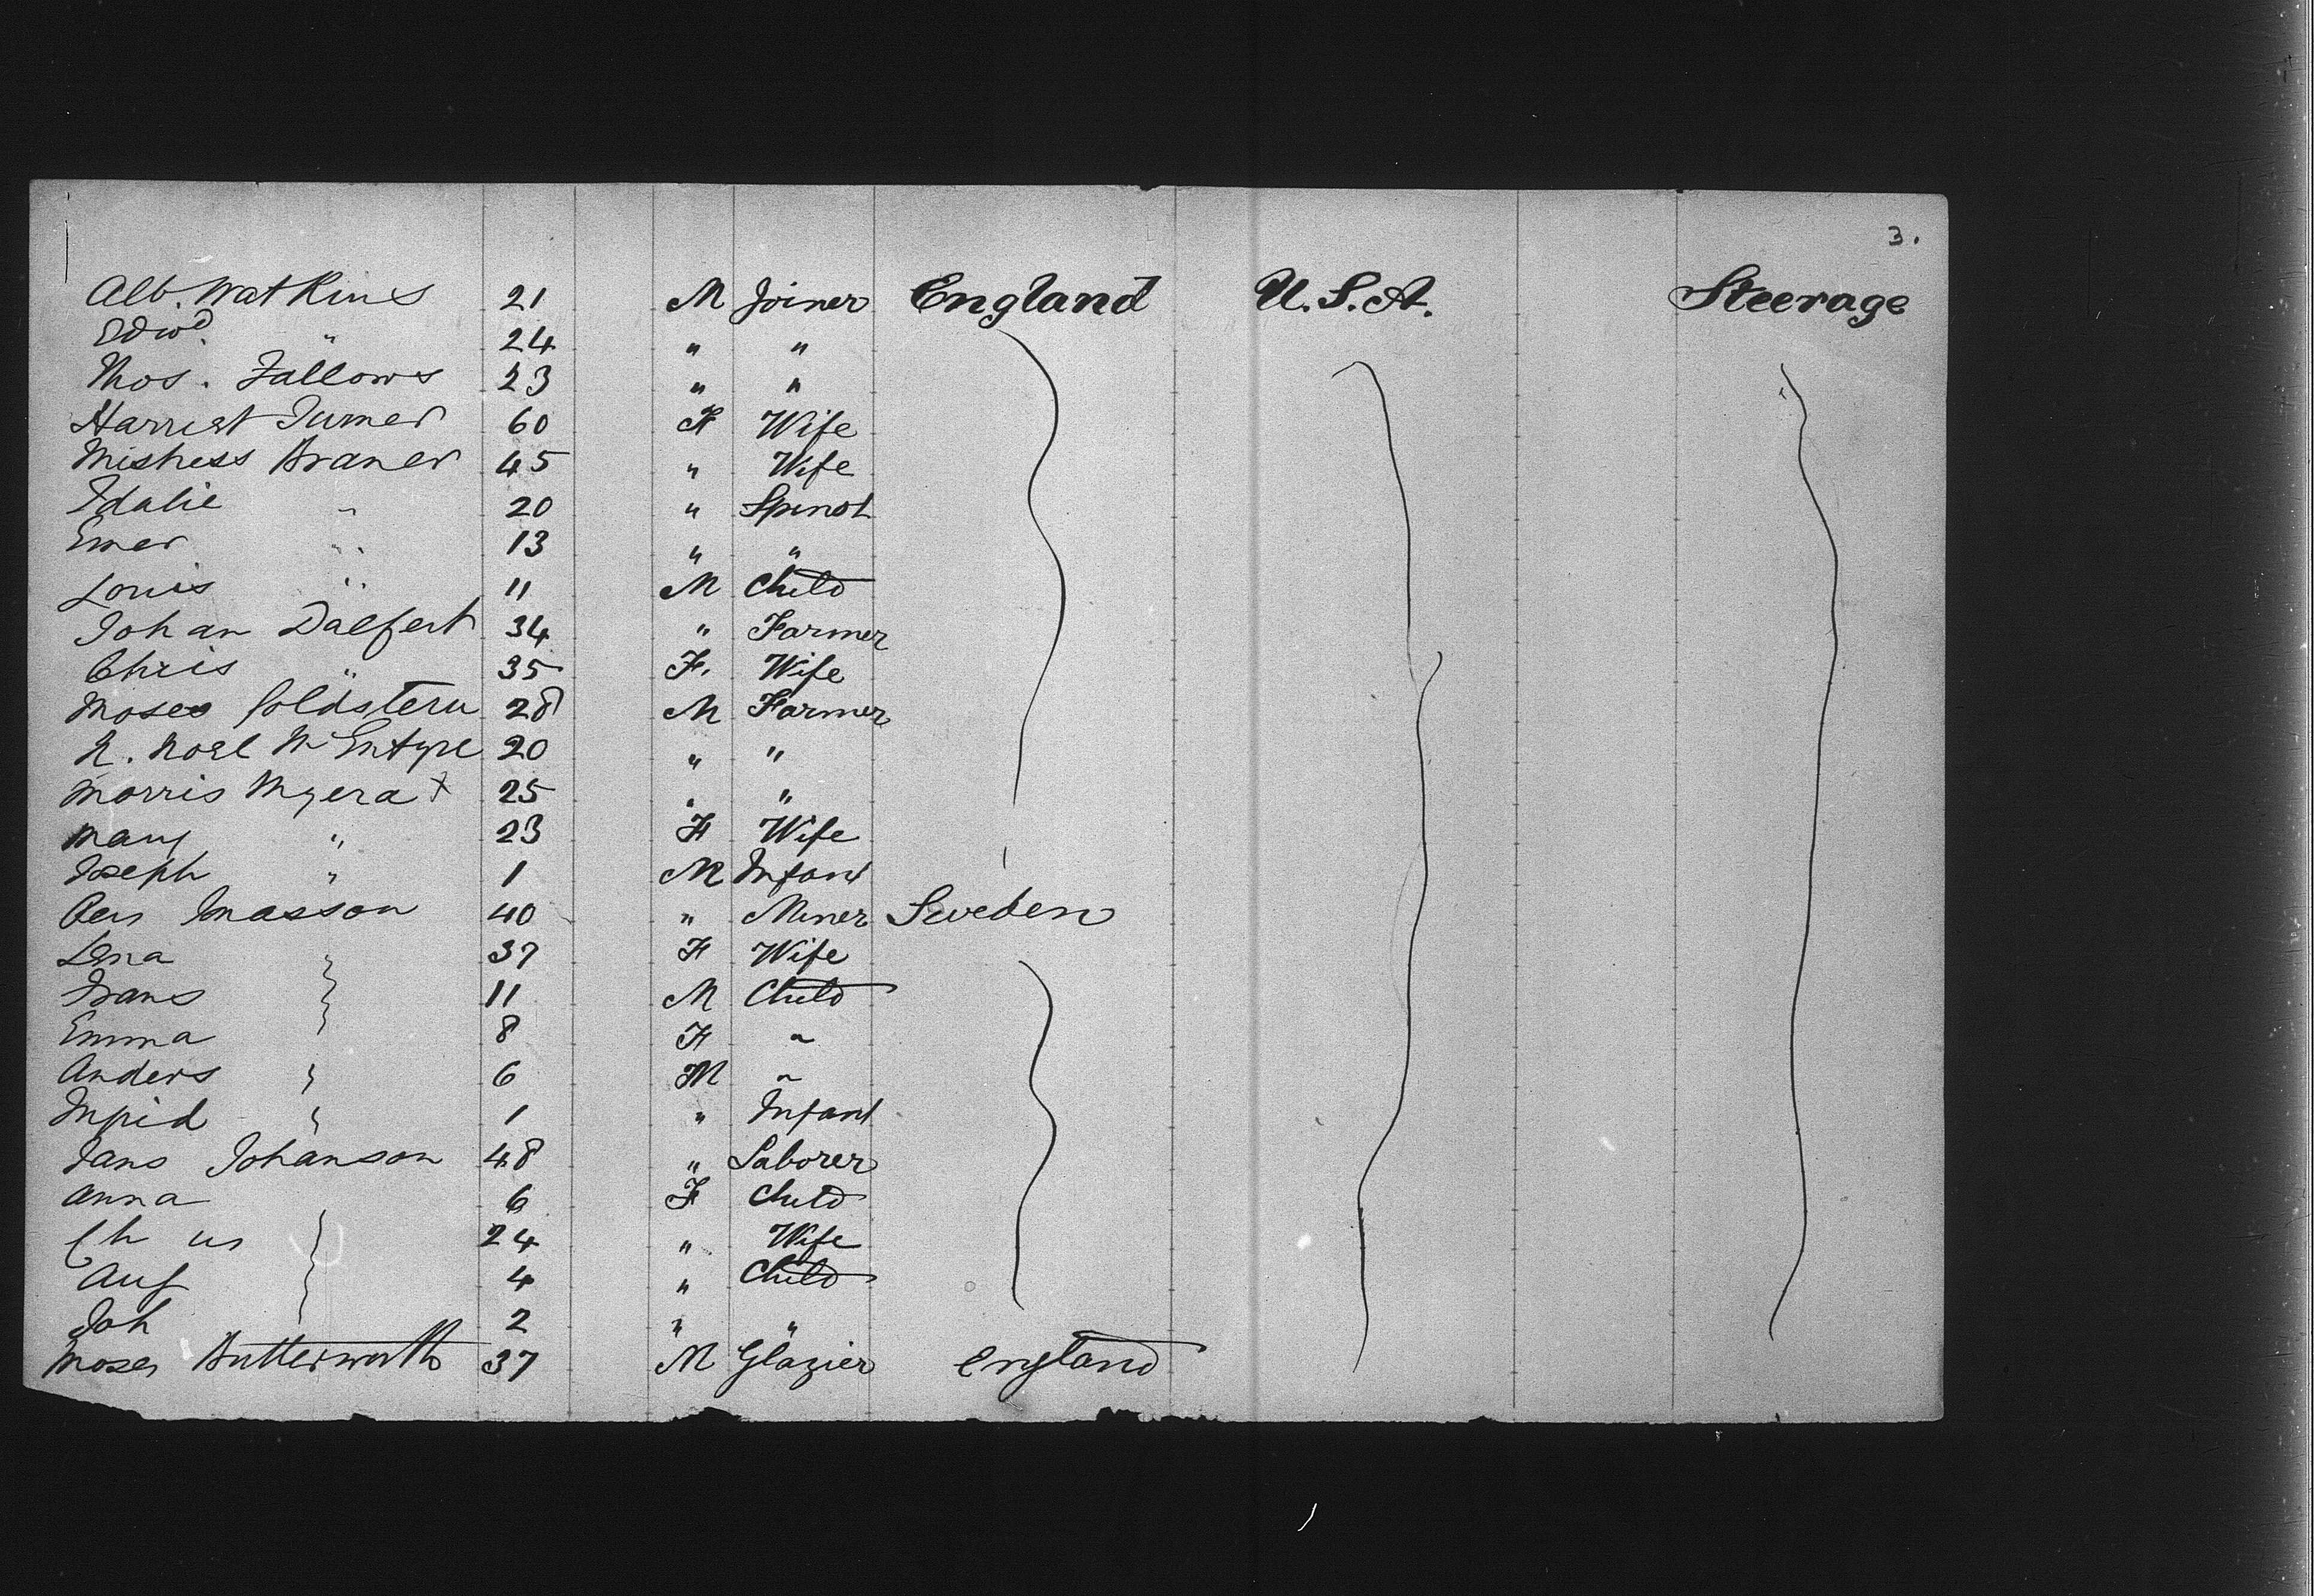 3.
Alb. Watkins 21 M Joiner England U.S.A. Steerage
Edwd. " 24 " "
Thos. Fallows 23 " "
Harriet Turner 60 F Wife
Mistress Braner 45 " Wife
Idalie " 20 " Spinst
Emer " 13 " "
Louis " 11 M Child
Johan Dalfert 34 " Farmer
Chris " 35 F. Wife
Moses Goldstein 28 M Farmer
N. Noel McEntyre 20 " "
Morris Myera 25 " "
Mary " 23 F Wife
Joseph " 1 M Infant
Masson 40 " Miner Sweden
Lena 37 F Wife
Frans 11 M Child
Emma 8 F "
Anders 6 M "
1 " Infant
Jans Johanson 48 " Laborer
Anna 6 F Child
24 " Wife
Aug 4 " Child
Joh 2 " "
Moses Butterworth 37 M Glazier England